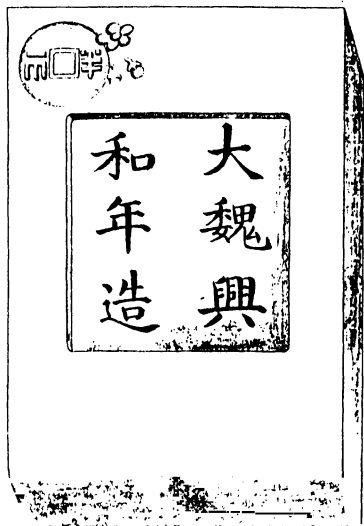 大魏興
和年造